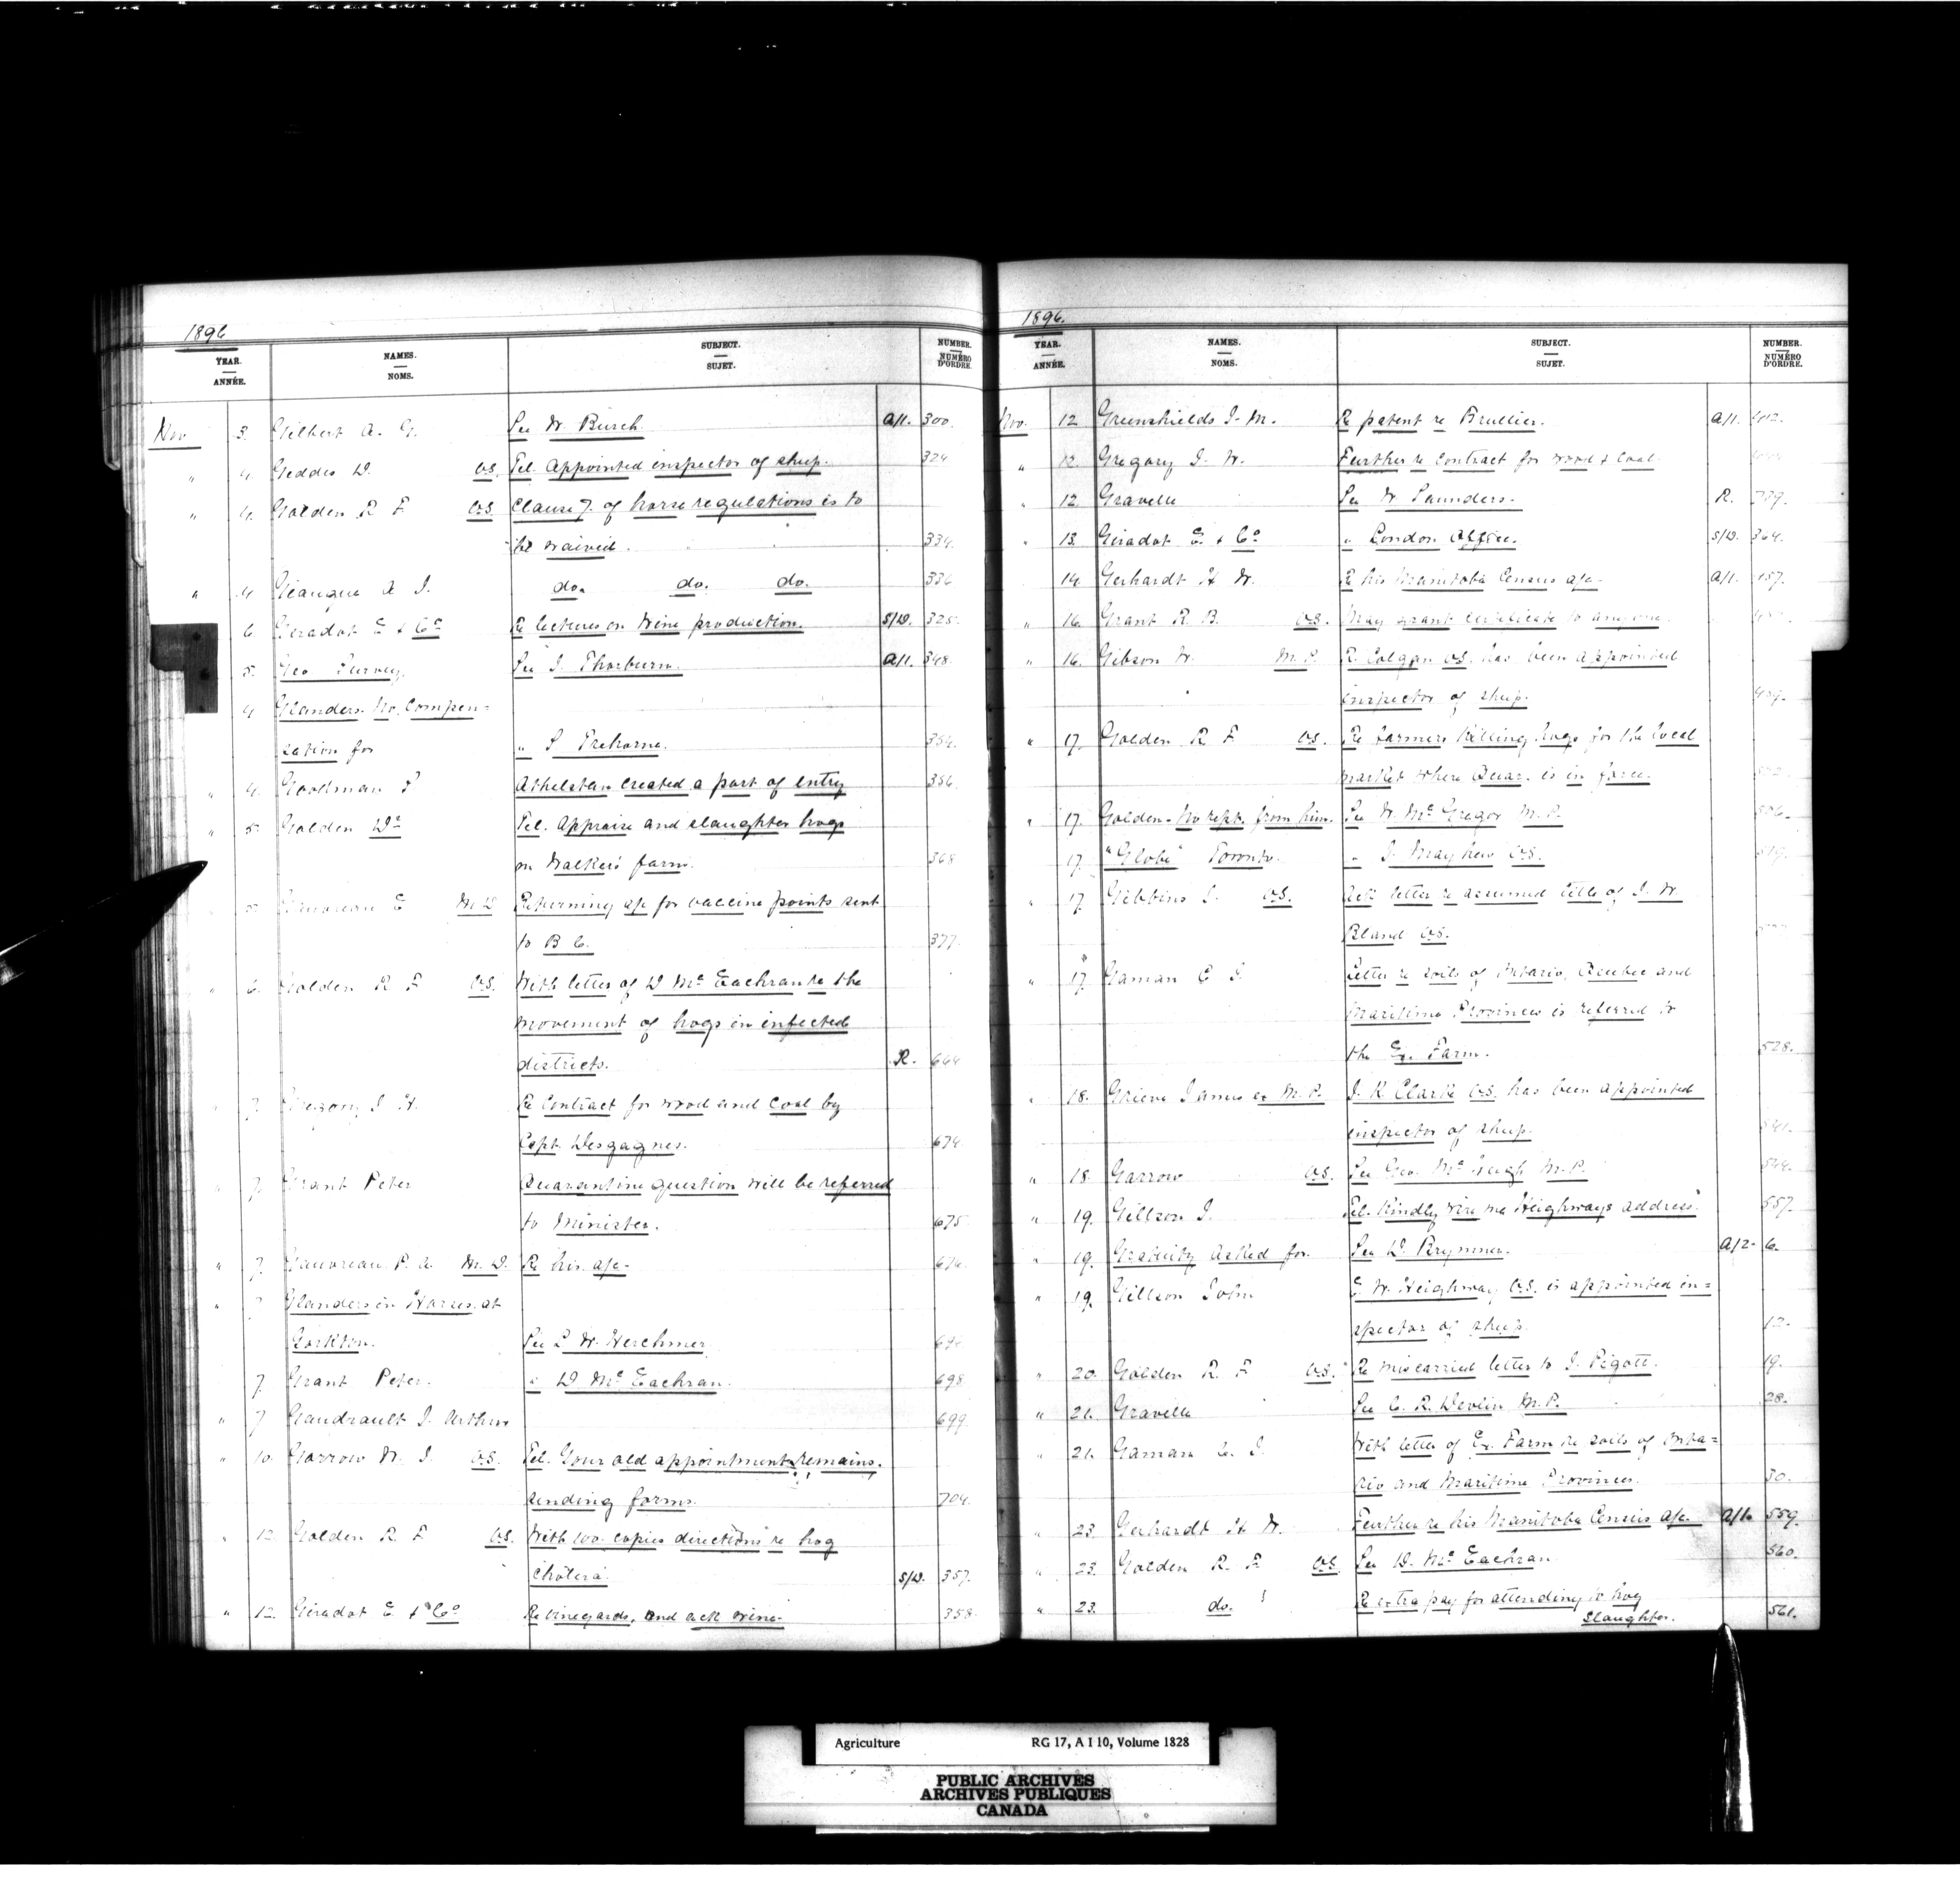 1896
YEAR. ANNÉE. NAMES. NOMS. SUBJECT. SUJET. NUMBER. NUMÉRO D'ORDRE.
Nov 3. Gilbert A. G. See W Burch A/1. 300.
" 4. Geddes D. V.S. Tel. Appointed inspector of sheep. 324
" 4. Golden R F V.S. Clause 7. of horse regulations is to
be waived. 334.
" 4. A J. do. do. do. 336
6. Geradot E & Co Re lectures on Wine production. S/W. 325.
5. Geo Survey. See J. Thorburn. A/1. 348.
4 Glanders. No. Compen=
sation for " S Trehorne. 354.
" 4. Goodman S Athelstan created a port of entry 356
" 5 Golden Dr Tel. Appraise and slaughter hogs
on Walkers farm. 368
5. Gauvreau E M.D Returning a/c for vaccine points sent
to B C. 377.
" 6. Golden R F V.S. With letter of D McEachran re the
movement of hogs in infected
districts. R. 664
7. Gregory J W. Re Contract for wood and Coal by
Capt Desgagnes. 674
7. Grant Peter Quarantine question will be referred
to Minister. 675
" 7. Gauvreau P. A. M.D. Re his a/c- 676.
" 7 Glanders in Horses at
Yorkton. See L W. Herchmer
7. Grant Peter. " D McEachran. 698
" 7 Gaudrault J. Arthur 699
" 10. Garrow W. J. V.S. Tel. Your old appointment remains.
sending forms. 704.
" 12. Golden R F V.S. With 100. copies directions re hog
Cholera S/W. 357.
" 12. Geradot E & Co Re vineyards, and ack wine- 358.
1896.
YEAR. ANNÉE. NAMES. NOMS. SUBJECT. SUJET. NUMBER. NUMÉRO D'ORDRE.
Nov. 12 Greenshields J. M. Re patent re Brullier. A/1. 412.
" 12. Gregory J. W. Further re Contract for wood & Coal.
" 12. Gravelle See W Saunders. R. 739.
" 13. Geradot E. & Co " London Office. S/W. 364.
14. Gerhardt H W. Re his Manitoba Census a/c- A/1. 457.
" 16. Grant R. B. V.S. May grant certificate to anyone.
" 16. Gibson W. M.P. R Colgan V.S. has been appointed
inspector of sheep. 489.
" 17. Golden R F V.S. Re farmers killing hogs for the local
market where Quar. is in force.
" 17. Golden- No rept. from him. See W. McGregor M.P. 506.
17. "Globe" Toronto. " J. Mayhew V.S. 519.
" 17. Gibbins J. V.S. Ack letter re assumed title of J. W.
Bland V.S.
" 17. Gaman C J. Letter re soils of Ontario, Quebec and
Maritime Provinces is referred to
the Ex. Farm. 528.
" 18. Grieve James ex M.P. J. K Clark V.S. has been appointed
inspector of sheep. 541.
" 18. Garrow V.S. See Geo. McHugh M.P. 544.
" 19. Gillson J. Tel. Kindly wire me Heighways address. 557.
" 19. Gratuity asked for. See D. Brymner. A/2- 6.
" 19. Gillson John E. W. Heighway V.S. is appointed in=
spector of sheep. 12.
" 20. Golden R. F V.S. Re miscarried letter to J. Pigott. 19.
" 21. Gravelle See C. R. Devlin M.P. 28.
" 21. Gaman C. J. With letter of Ex. Farm re soils of Onta=
rio and Maritime Provinces. 30.
" 23. Gerhardt H W. Further re his Manitoba Census a/c. A/1. 559.
" 23. Golden R. F V.S. See D. McEachran 560.
" 23. do. Re extra pay for attending to hog
slaughter. 561.
Agriculture RG 17, A I 10, Volume 1828
PUBLIC ARCHIVES
ARCHIVES PUBLIQUES
CANADA